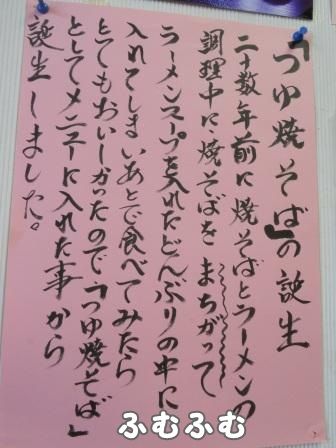 「つゆ焼そば」の誕生
二十数年前に焼そばとラーメンの
調理中に、焼そばをまちがって
ラーメンスープを入れたどんぶりの中に
入れてしまいあとで食べてみたら
とてもおいしかったので「つゆ焼そば」
としてメニューに入れた事から
誕生しました。
ふむふむ